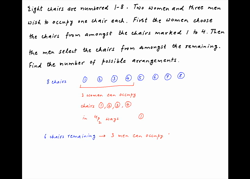 Eight chairs are numbered 1-8. Two women and three men
wish to occupy one chair each. First the women choose
the chairs from amongst the chairs marked 1 to 4. Then
the men select the chairs from amongst the remaining.
Find the number of possible arrangements.
8 chairs ① ② ③ ④ ⑤ ⑥ ⑦ ⑧
2 women can occupy
chairs ①, ②, ③, ④
in ways
6 chairs remaining → 3 men can occupy